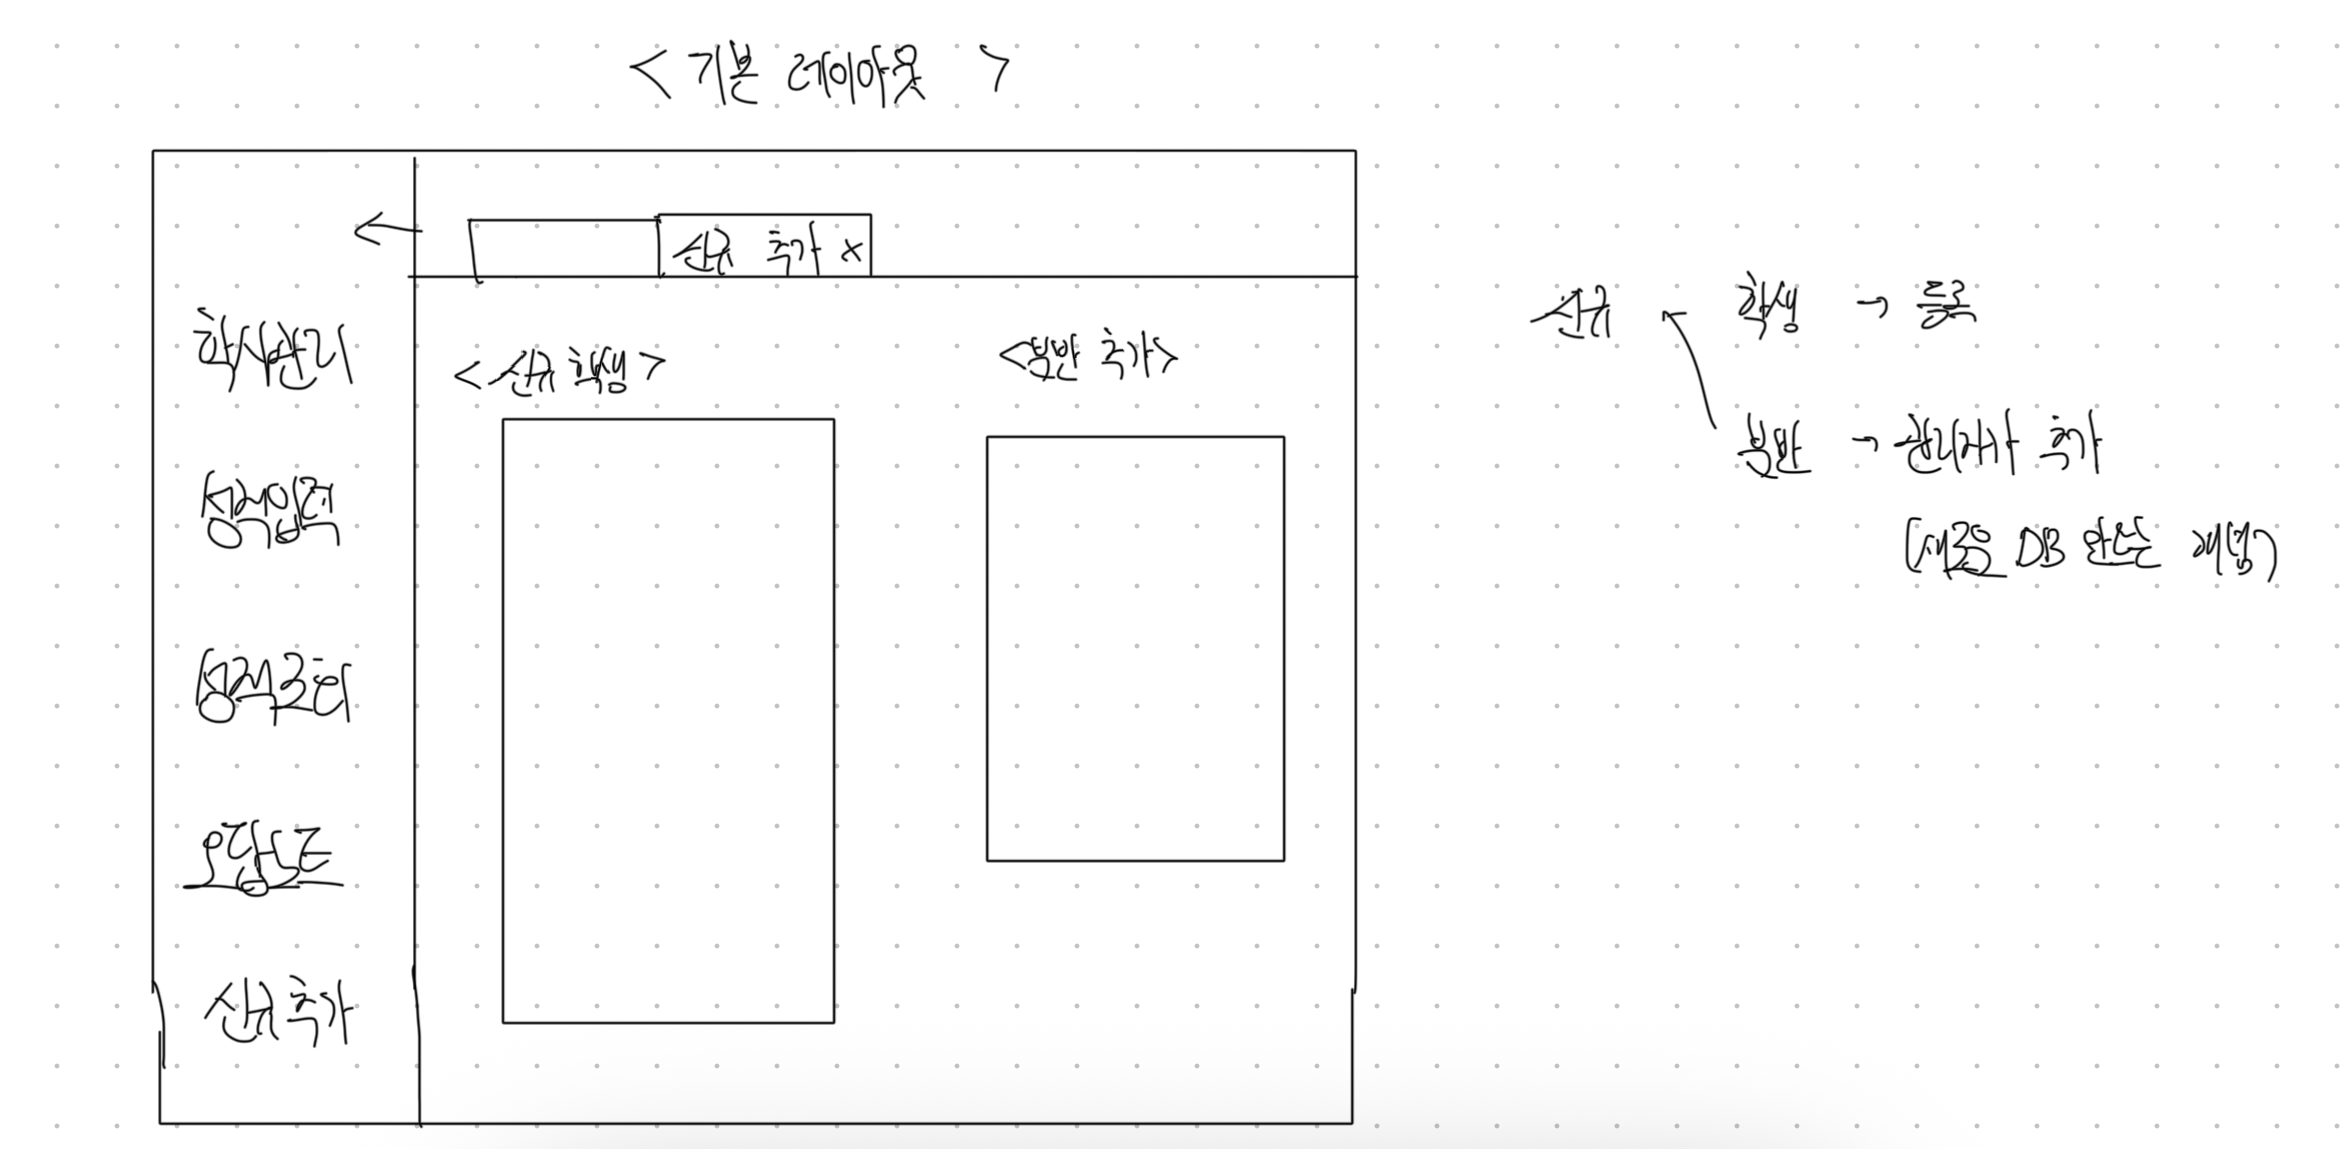 < 기본 레이아웃 >
신규 추가 x
학사관리
성적입력
성적조회
오답노트
신규추가
<신규 학생>
<분반 추가>
신규 학생 → 등록
분반 → 관리자가 추가
(새로운 DB 만드는 개념)